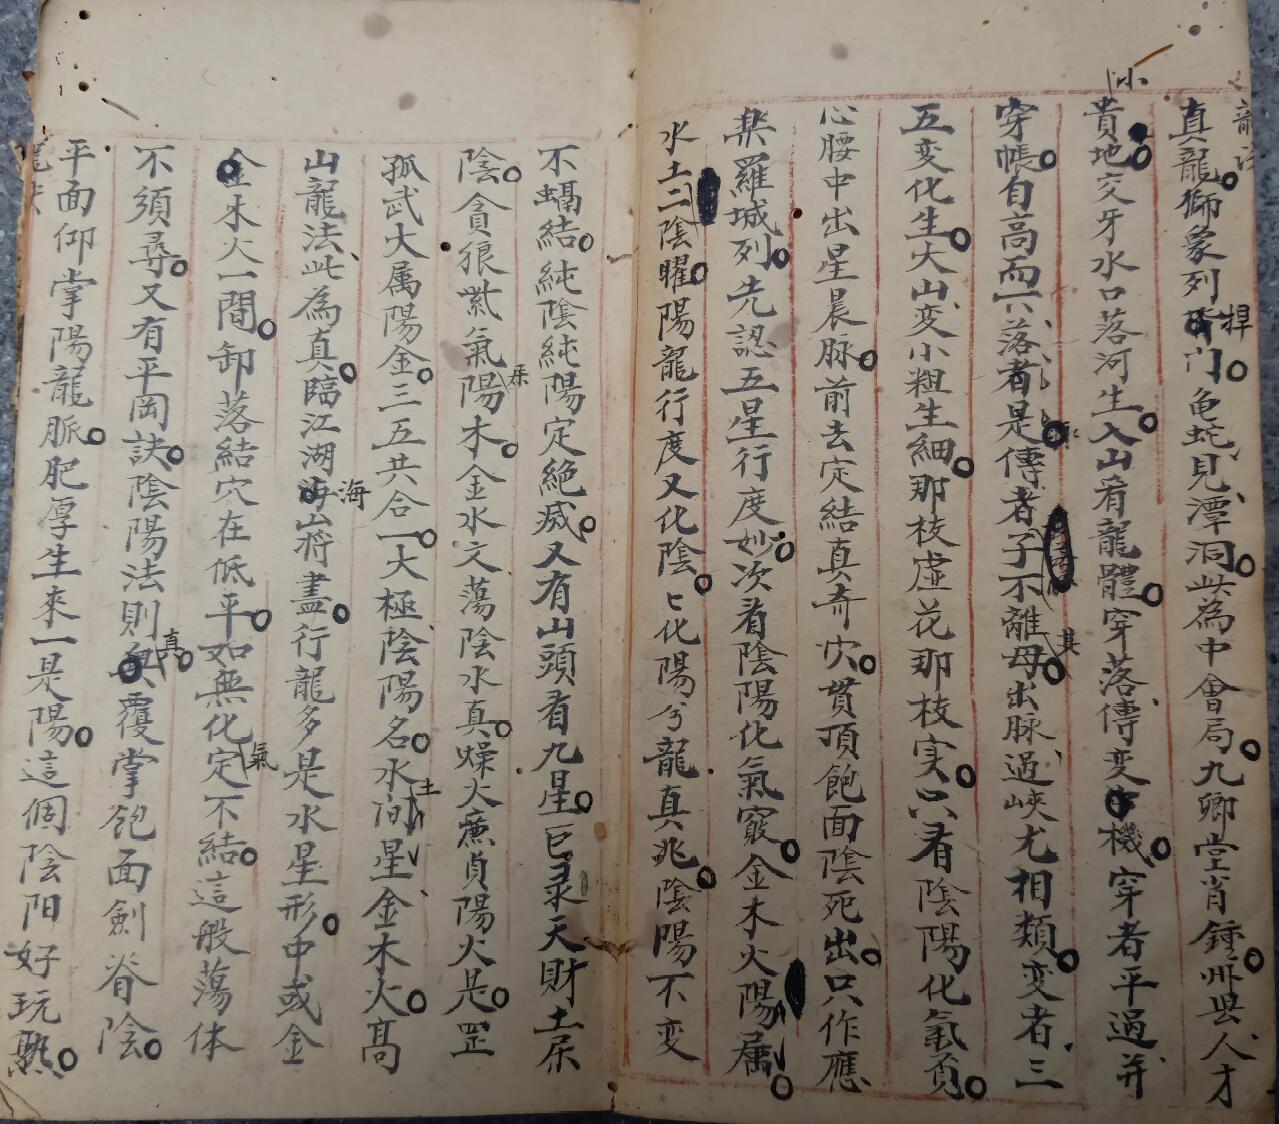 真龍獅象列捍门龟蛇見潭洞此為中會局九卿堂肖鍾州县人才
貴地交牙水口落河生入山看龍體穿落傳变機穿者平過并
穿帳自高而下落者是傳者子不離母出脉過峽尤相類变者三
五变化生火山变小粗生細那枝虚花那枝实只看陰陽化氣負
心腰中出星晨脉前去定結真奇穴貫頂飽面陰死出只作應
楽羅城列先認五星行度妙次看陰陽化氣竅金木火陽属
水土二陰曜陽龍行度又化陰匕化陽兮龍真兆陰陽不变
不蝹結純陰純陽定絶烕又有山頭看九星巨录天財土屎
陰貪狼紫氣陽木金水文蕩陰水真燥火廉貞陽火是罡
孤武大属陽金三五共合一大極陰陽名水土间星金木火高
山龍法此為真臨江湖海山将盡行龍多是水星形中或金
金木火一間卸落結穴在低平如無化氣定不結這般蕩体
不須尋又有平岡訣陰陽法則真覆掌飽面劍脊陰
平面仰掌陽龍脈肥厚生來一是陽這個陰阳好玩熟